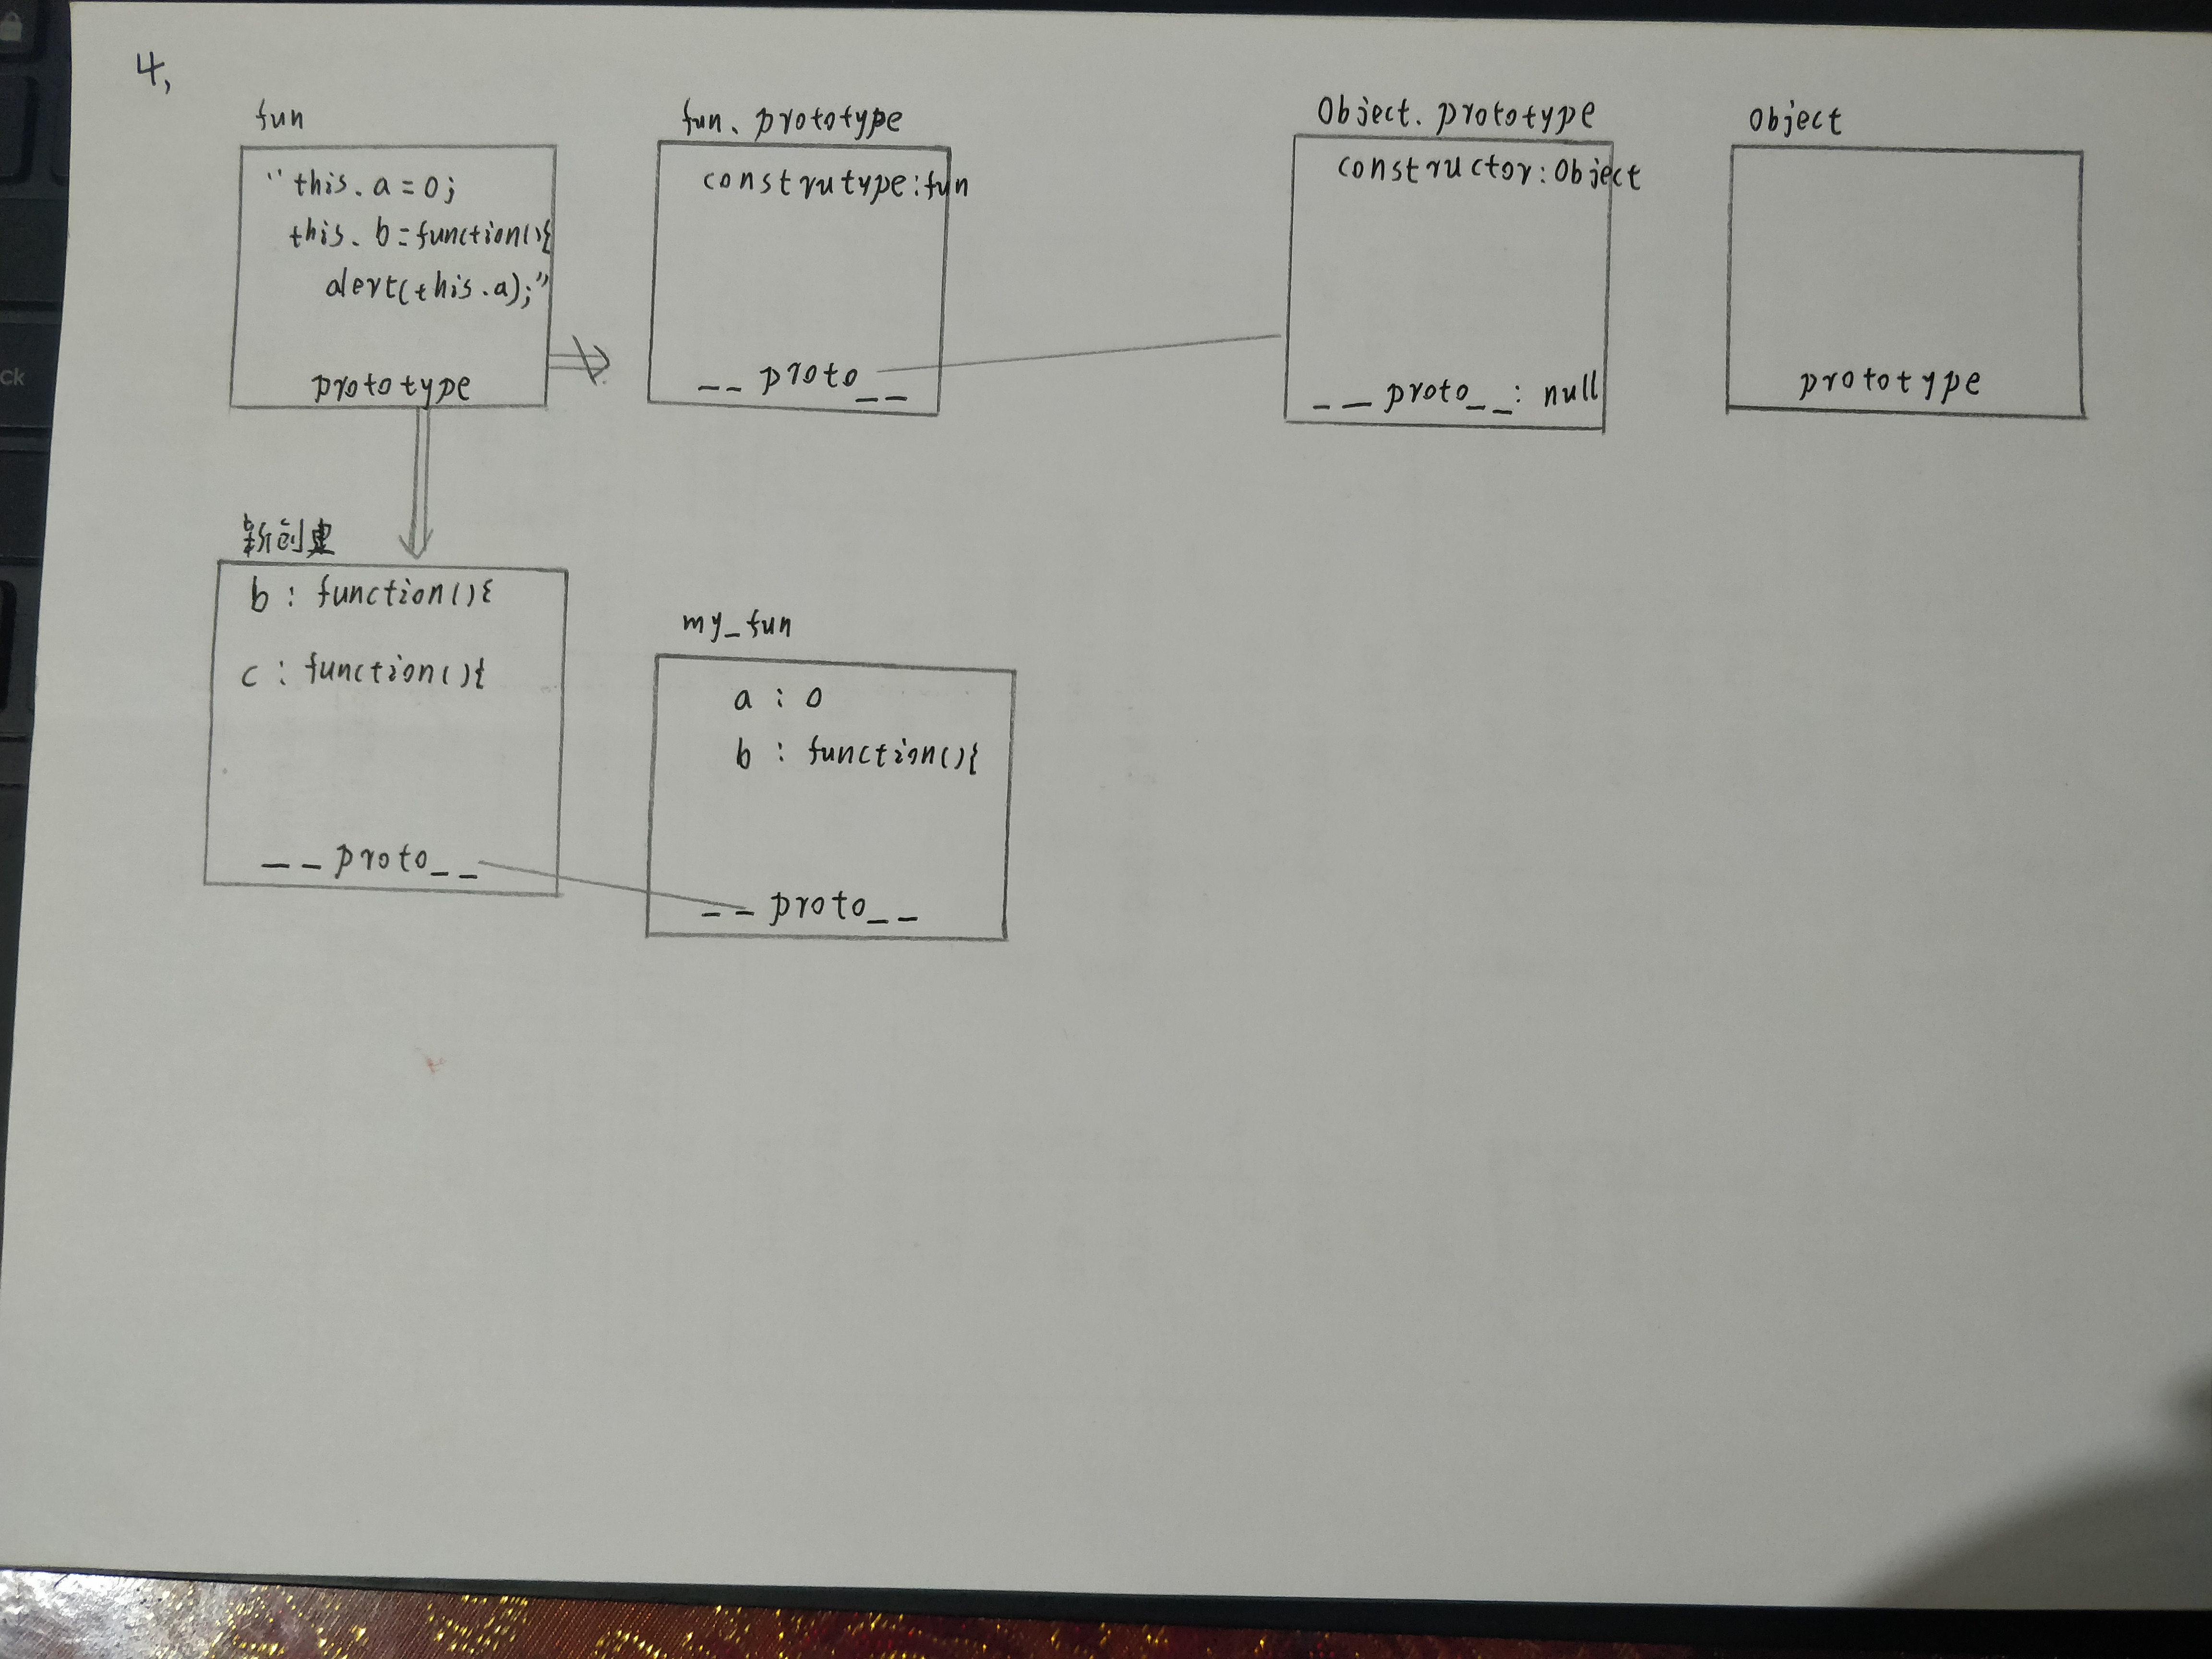 4,
fun
"this.a=0;
this.b=function(){
alert(this.a);"
prototype
fun.prototype
construtype:fun
__proto__
Object.prototype
constructor:Object
__proto__: null
Object
prototype
新创建
b : function(){
c : function(){
__proto__
my_fun
a : 0
b : function(){
__proto__
ck